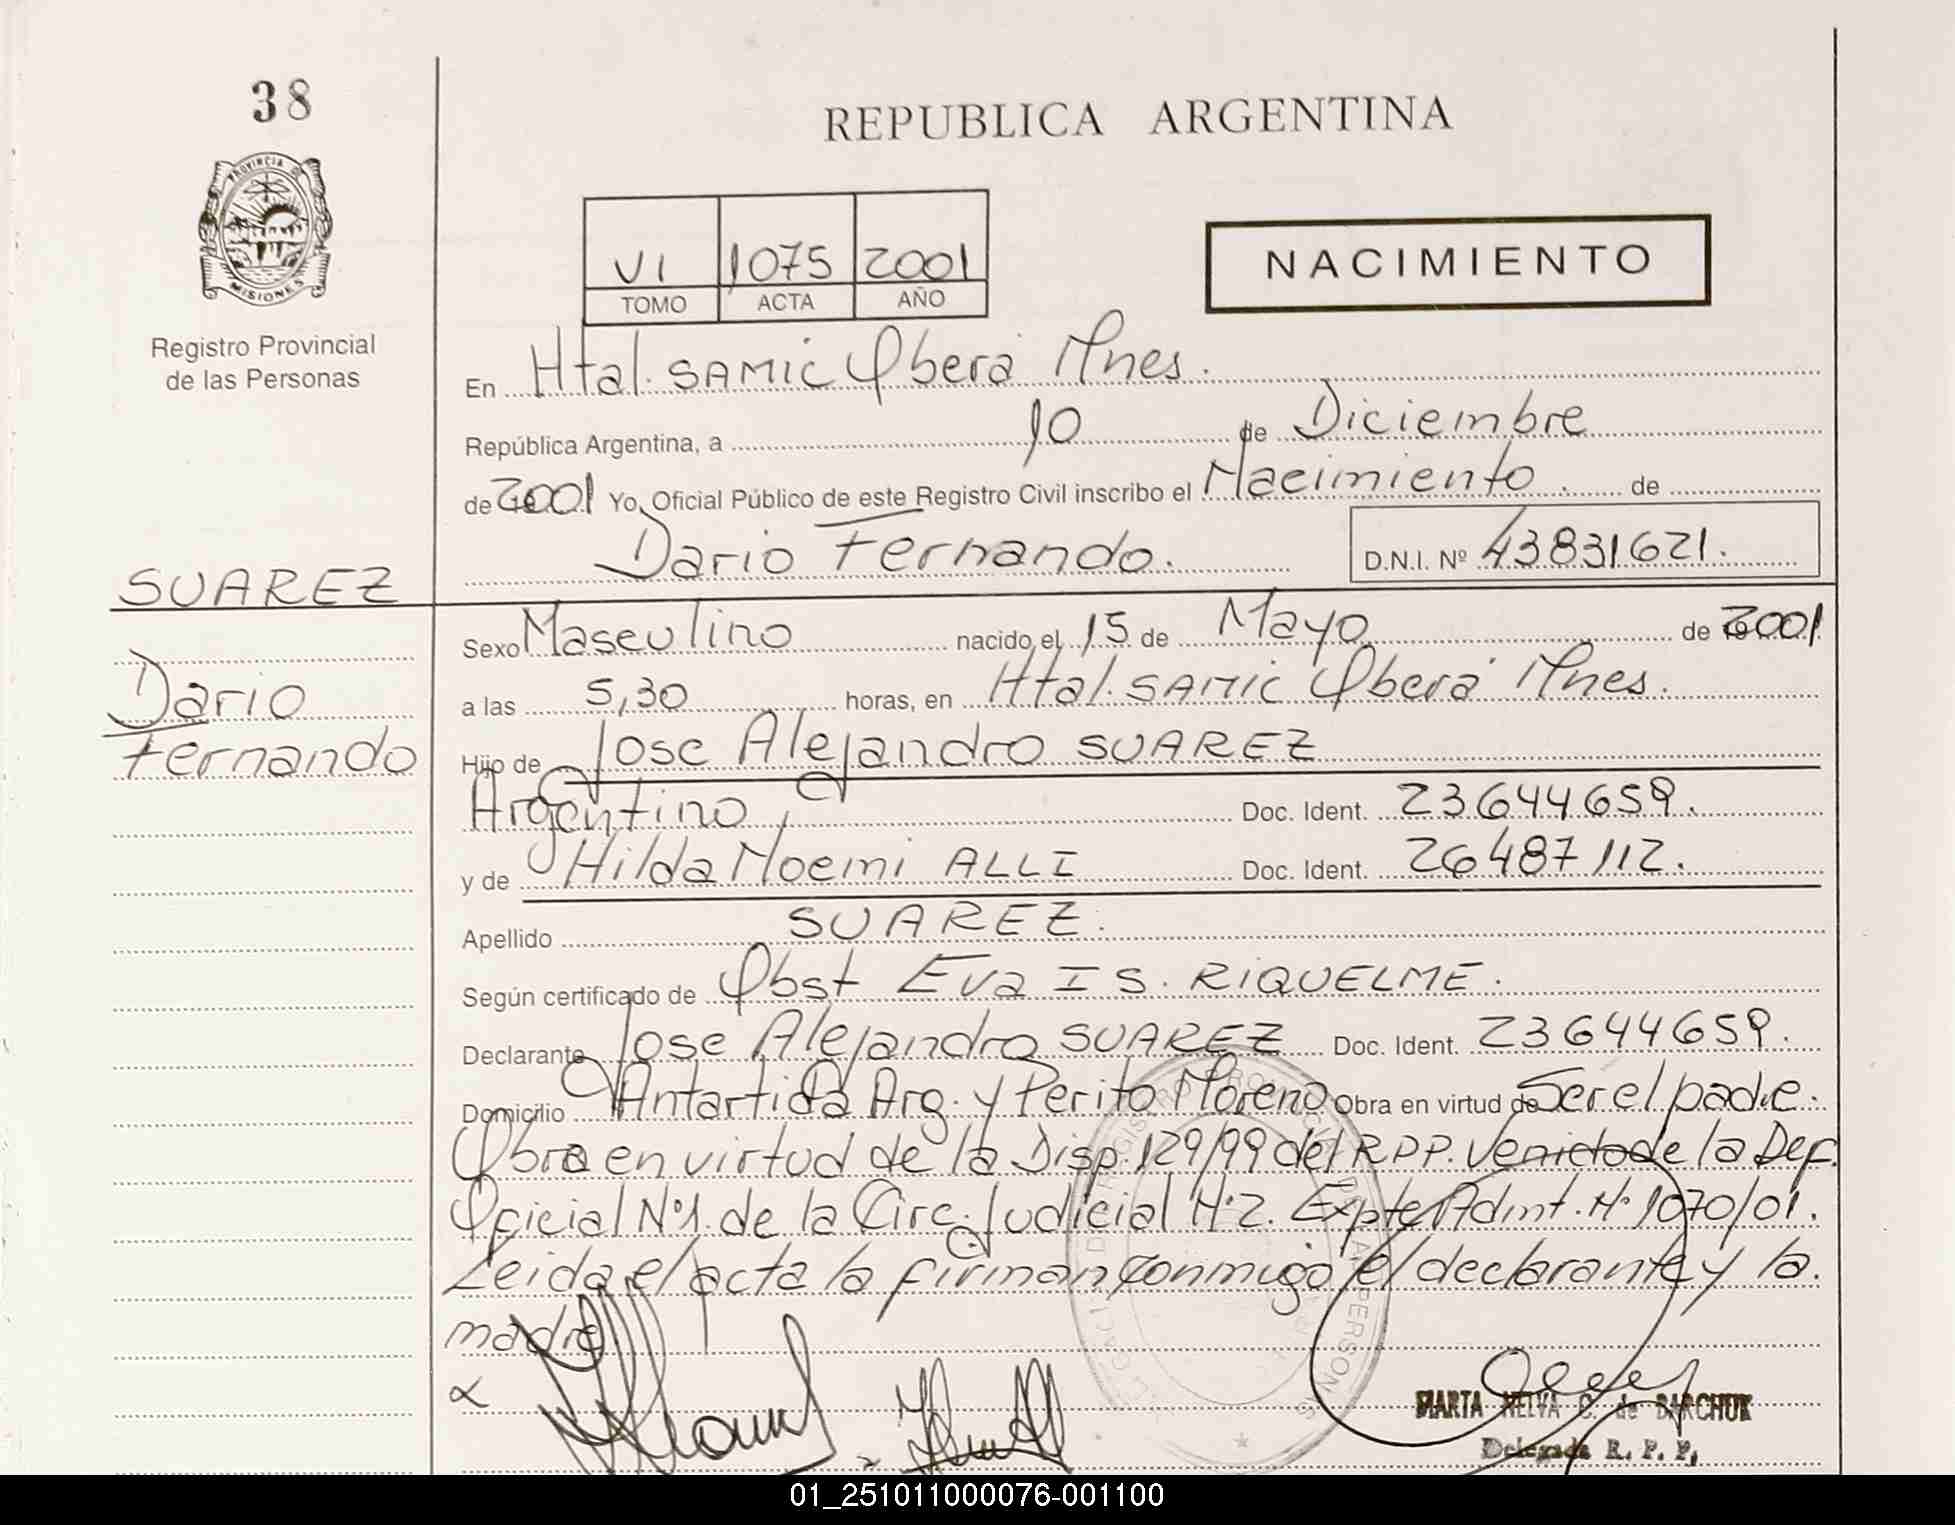 38
REPUBLICA ARGENTINA
PROVINCIA DE
MISIONES
Registro Provincial
de las Personas
VI 1075 2001
TOMO ACTA AÑO
NACIMIENTO
En Htal. SAMIC Oberá Mnes.
República Argentina, a 10 de Diciembre
de 2001 Yo, Oficial Público de este Registro Civil inscribo el Nacimiento de
Dario Fernando. D.N.I. Nº 43831621.
SUAREZ
Dario
Fernando
Sexo Masculino nacido el 15 de Mayo de 2001
a las 5,30 horas, en Htal. SAMIC Oberá Mnes.
Hijo de Jose Alejandro SUAREZ
Argentino Doc. Ident. 23644659.
y de Hilda Noemi ALLI Doc. Ident. 26487112.
Apellido SUAREZ.
Según certificado de Obst Eva I S. RIQUELME.
Declarante Jose Alejandro SUAREZ Doc. Ident. 23644659.
Domicilio Antartida Arg. y Perito Moreno Obra en virtud de Ser el padre.
Obra en virtud de la Disp. 129/99 del RPP. Venido de la Def.
Oficial Nº1. de la Circ. Judicial Nº2. Expte Admt. Nº 1070/01.
Leida el acta la firman conmigo el declarante y la
madre
MARTA NELVA C. de BARCHUK
Delegada R. P. P.
01_251011000076-001100